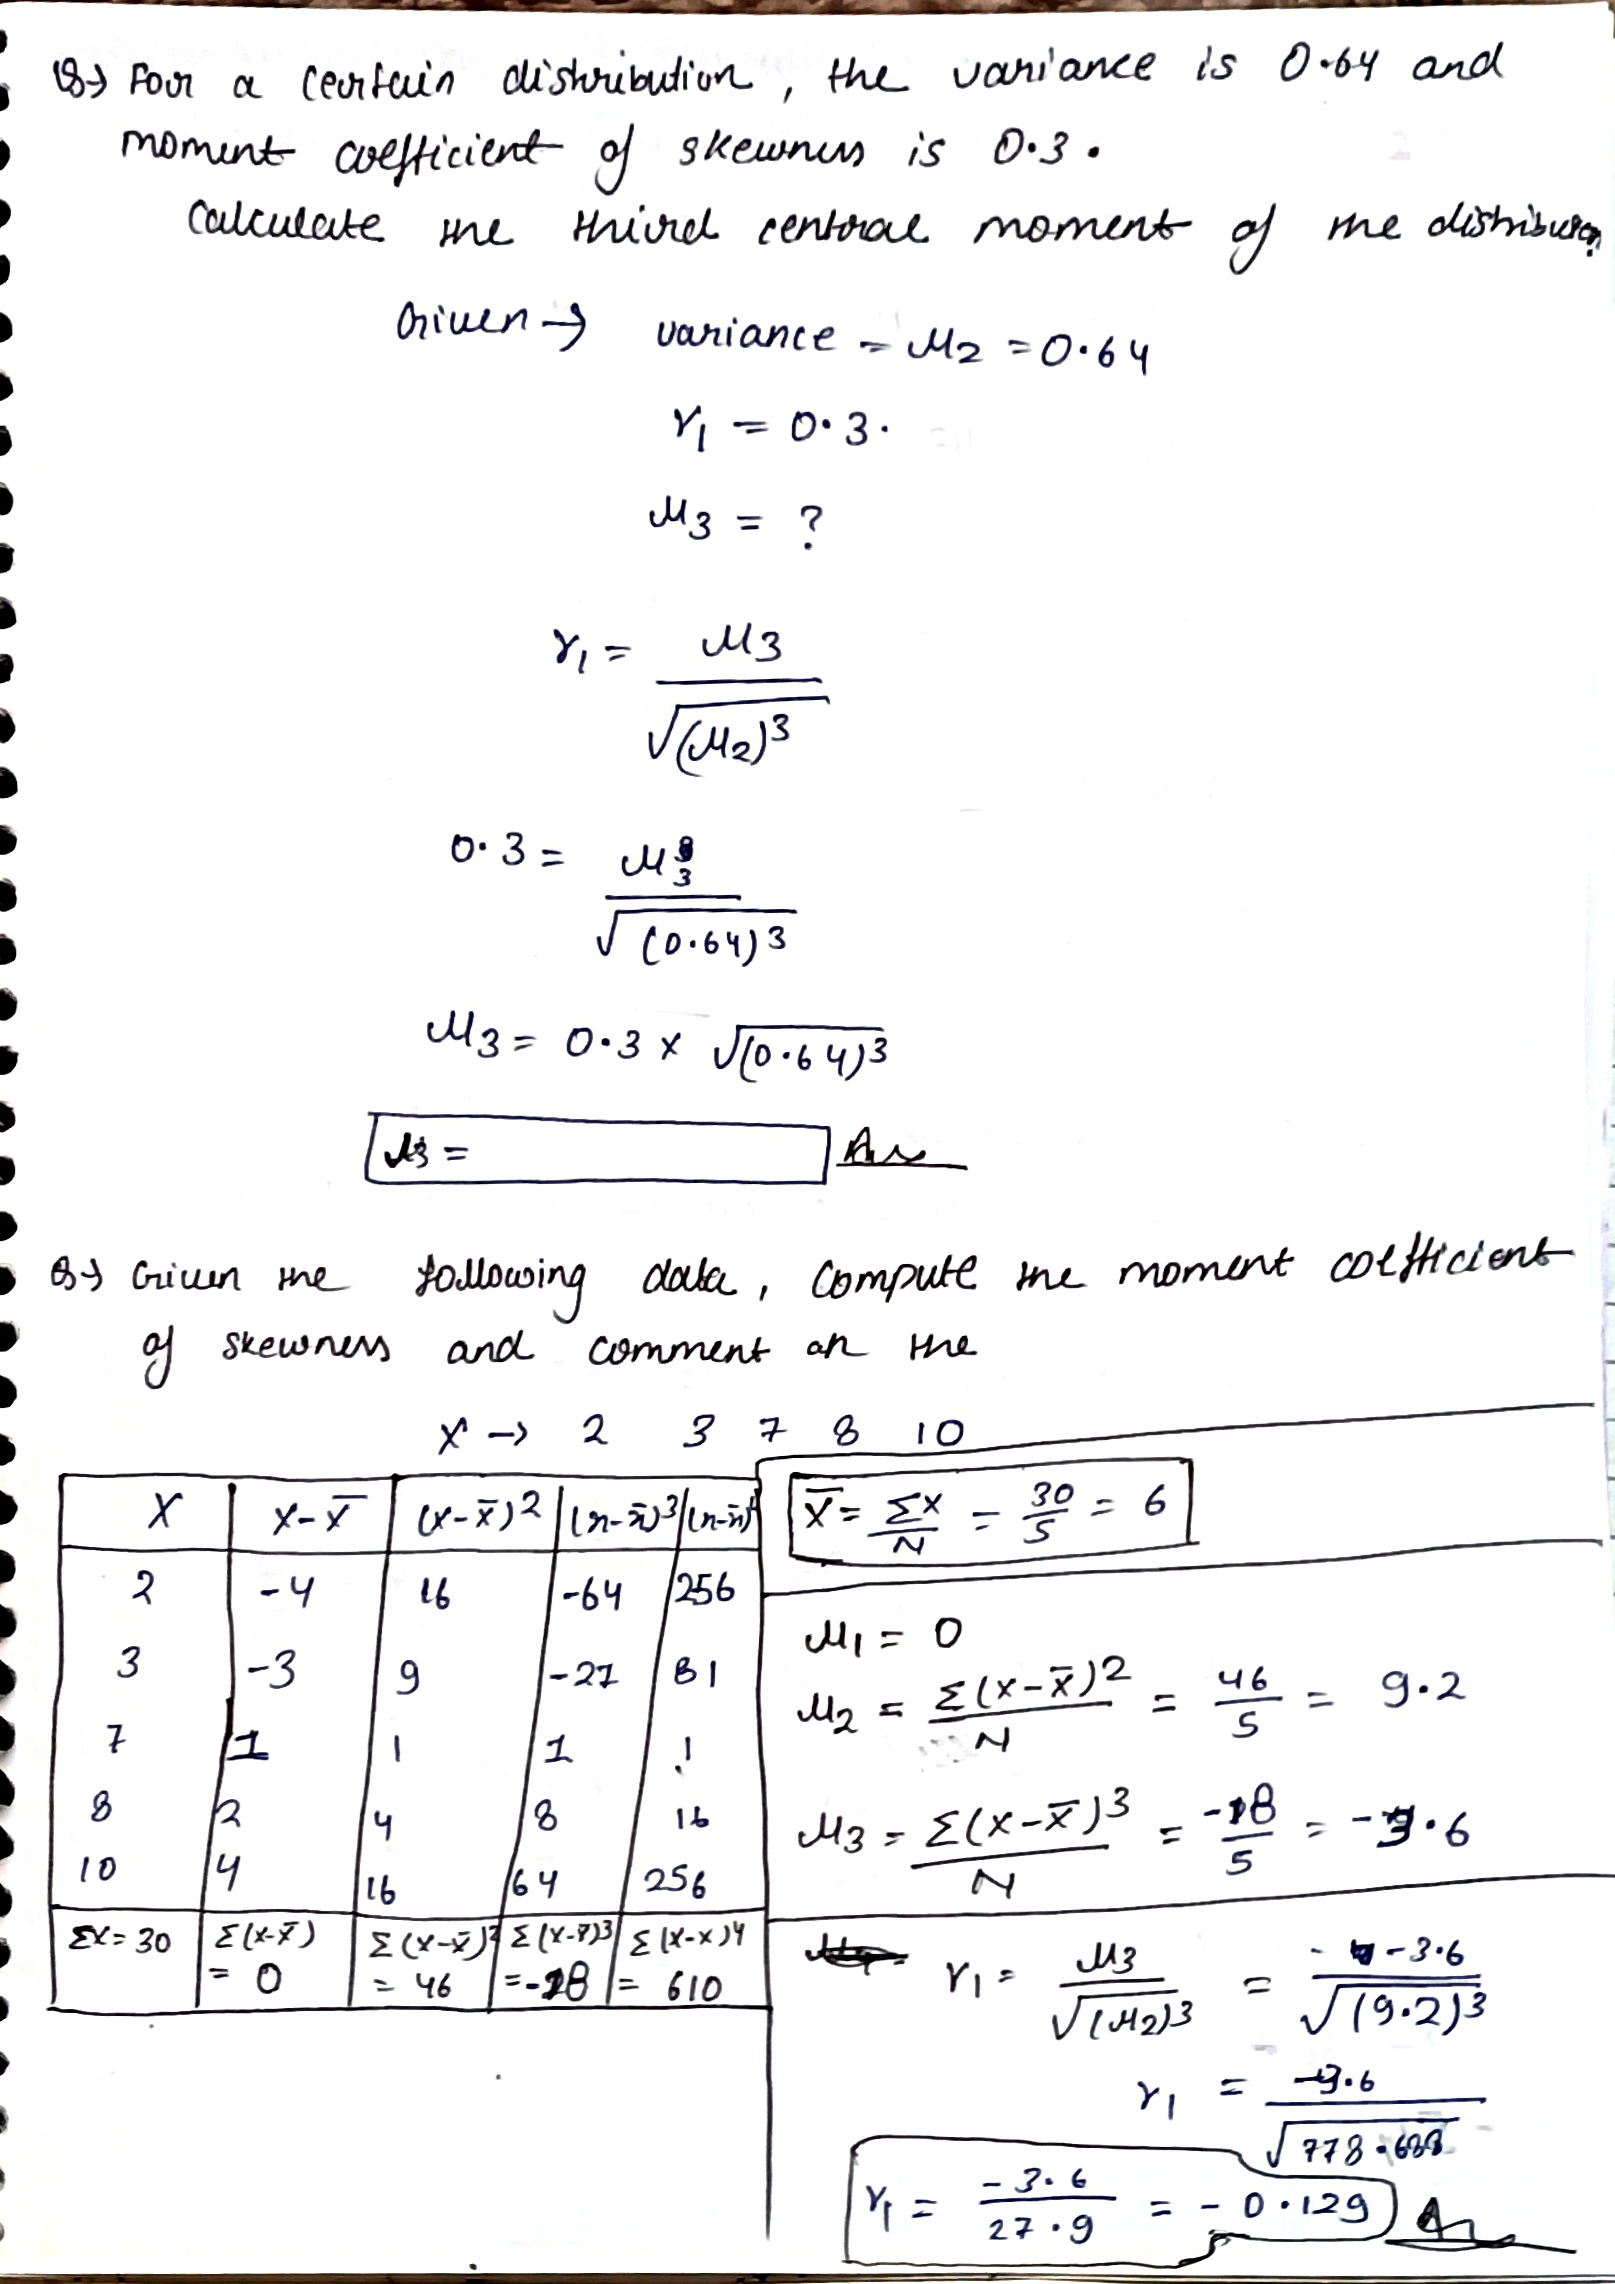 Q→ For a certain distribution, the variance is 0.64 and
moment coefficient of skewness is 0.3.
Calculate the third central moment of the distribution
Given → variance = μ2 = 0.64
γ1 = 0.3.
μ3 = ?
γ1 = μ3 / √(μ2)^3
0.3 = μ3 / √(0.64)^3
μ3 = 0.3 x √(0.64)^3
μ3 = Ans
Q→ Given the following data, compute the moment coefficient
of skewness and comment on the
X → 2 3 7 8 10
X | X-X̄ | (X-X̄)^2 | (x-x̄)^3 | (x-x̄)^4
2 | -4 | 16 | -64 | 256
3 | -3 | 9 | -27 | 81
7 | 1 | 1 | 1 | 1
8 | 2 | 4 | 8 | 16
10 | 4 | 16 | 64 | 256
ΣX = 30 | Σ(X-X̄) = 0 | Σ(X-X̄)^2 = 46 | Σ(X-X̄)^3 = -18 | Σ(X-X)^4 = 610
X̄ = ΣX / N = 30 / 5 = 6
μ1 = 0
μ2 = Σ(X-X̄)^2 / N = 46 / 5 = 9.2
μ3 = Σ(X-X̄)^3 / N = -18 / 5 = -3.6
γ1 = μ3 / √(μ2)^3 = -3.6 / √(9.2)^3
γ1 = -3.6 / √778.688
γ1 = -3.6 / 27.9 = -0.129 Ans